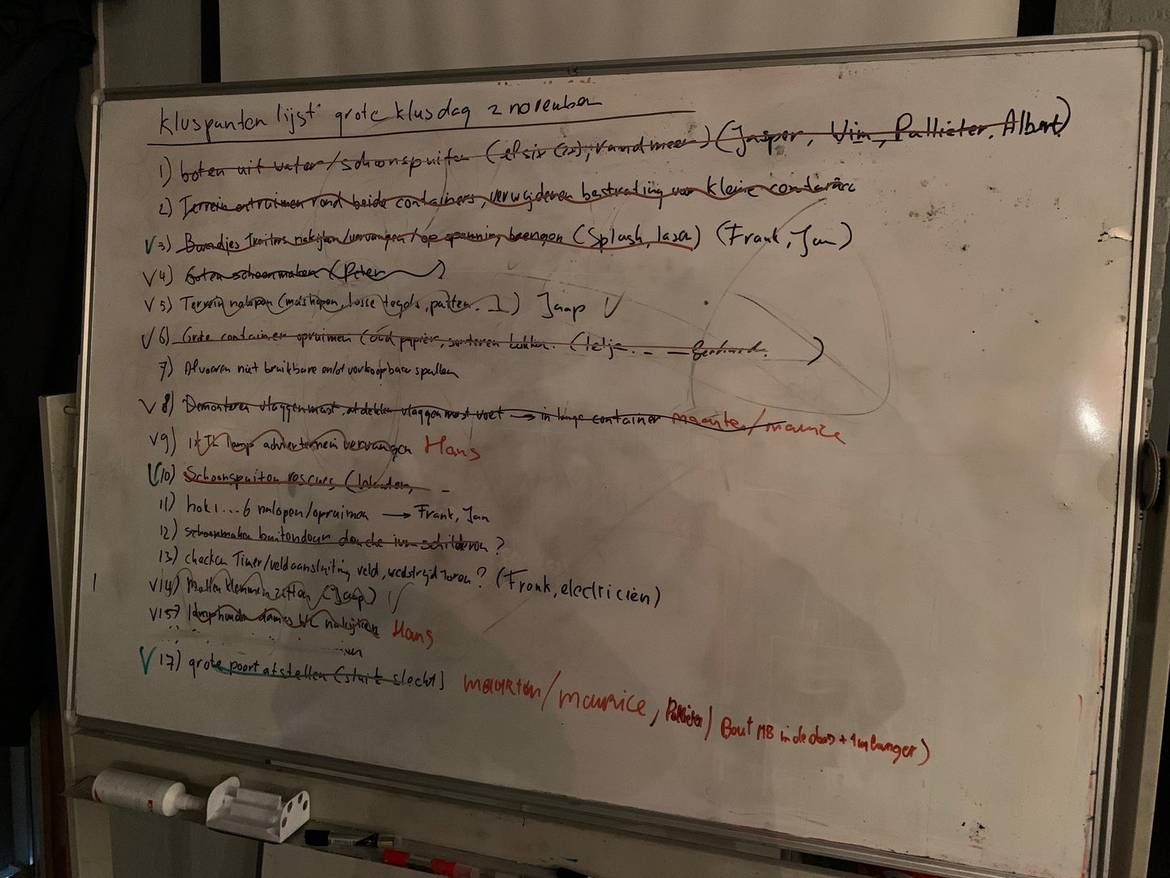 kluspuntenlijst grote klusdag 2 november
1) boten uit water/schoonspuiten (elsix (22), randmeer) (Jasper, Wim, Pallieter, Albert)
2) Terrein ontruimen rond beide containers, verwijderen bestrating voor kleine container
V 3) Bandjes Trailers nakijken/vervangen/op spanning brengen (Splash, laser) (Frank, Jan)
V 4) Goten schoonmaken (Peter)
V 5) Terrein nalopen (molshopen, losse tegels, putten ...) Jaap V
V 6) Grote container opruimen (oud papier, sorteren (
7) Afvoeren niet bruikbare en/of verkoopbare spullen
V 8) Demonteren vlaggenmast, afdekken vlaggenmast voet → in lange container maarten/maurice
V 9) lamp achterterrein vervangen Hans
V 10) Schoonspuiten rescues (
11) hok 1...6 nalopen/opruimen → Frank, Jan
12) schoonmaken buitendouche schilderen ?
13) checken Timer/veldaansluiting veld, wedstrijdtoren? (Frank, electricien)
V 14) Mollen klemmen zetten (Jaap) V
V 15) dames WC nakijken Hans
V 17) grote poort afstellen (sluit slecht) maarten/maurice, Pallieter) Bout M8 in de doos + 1m langer)